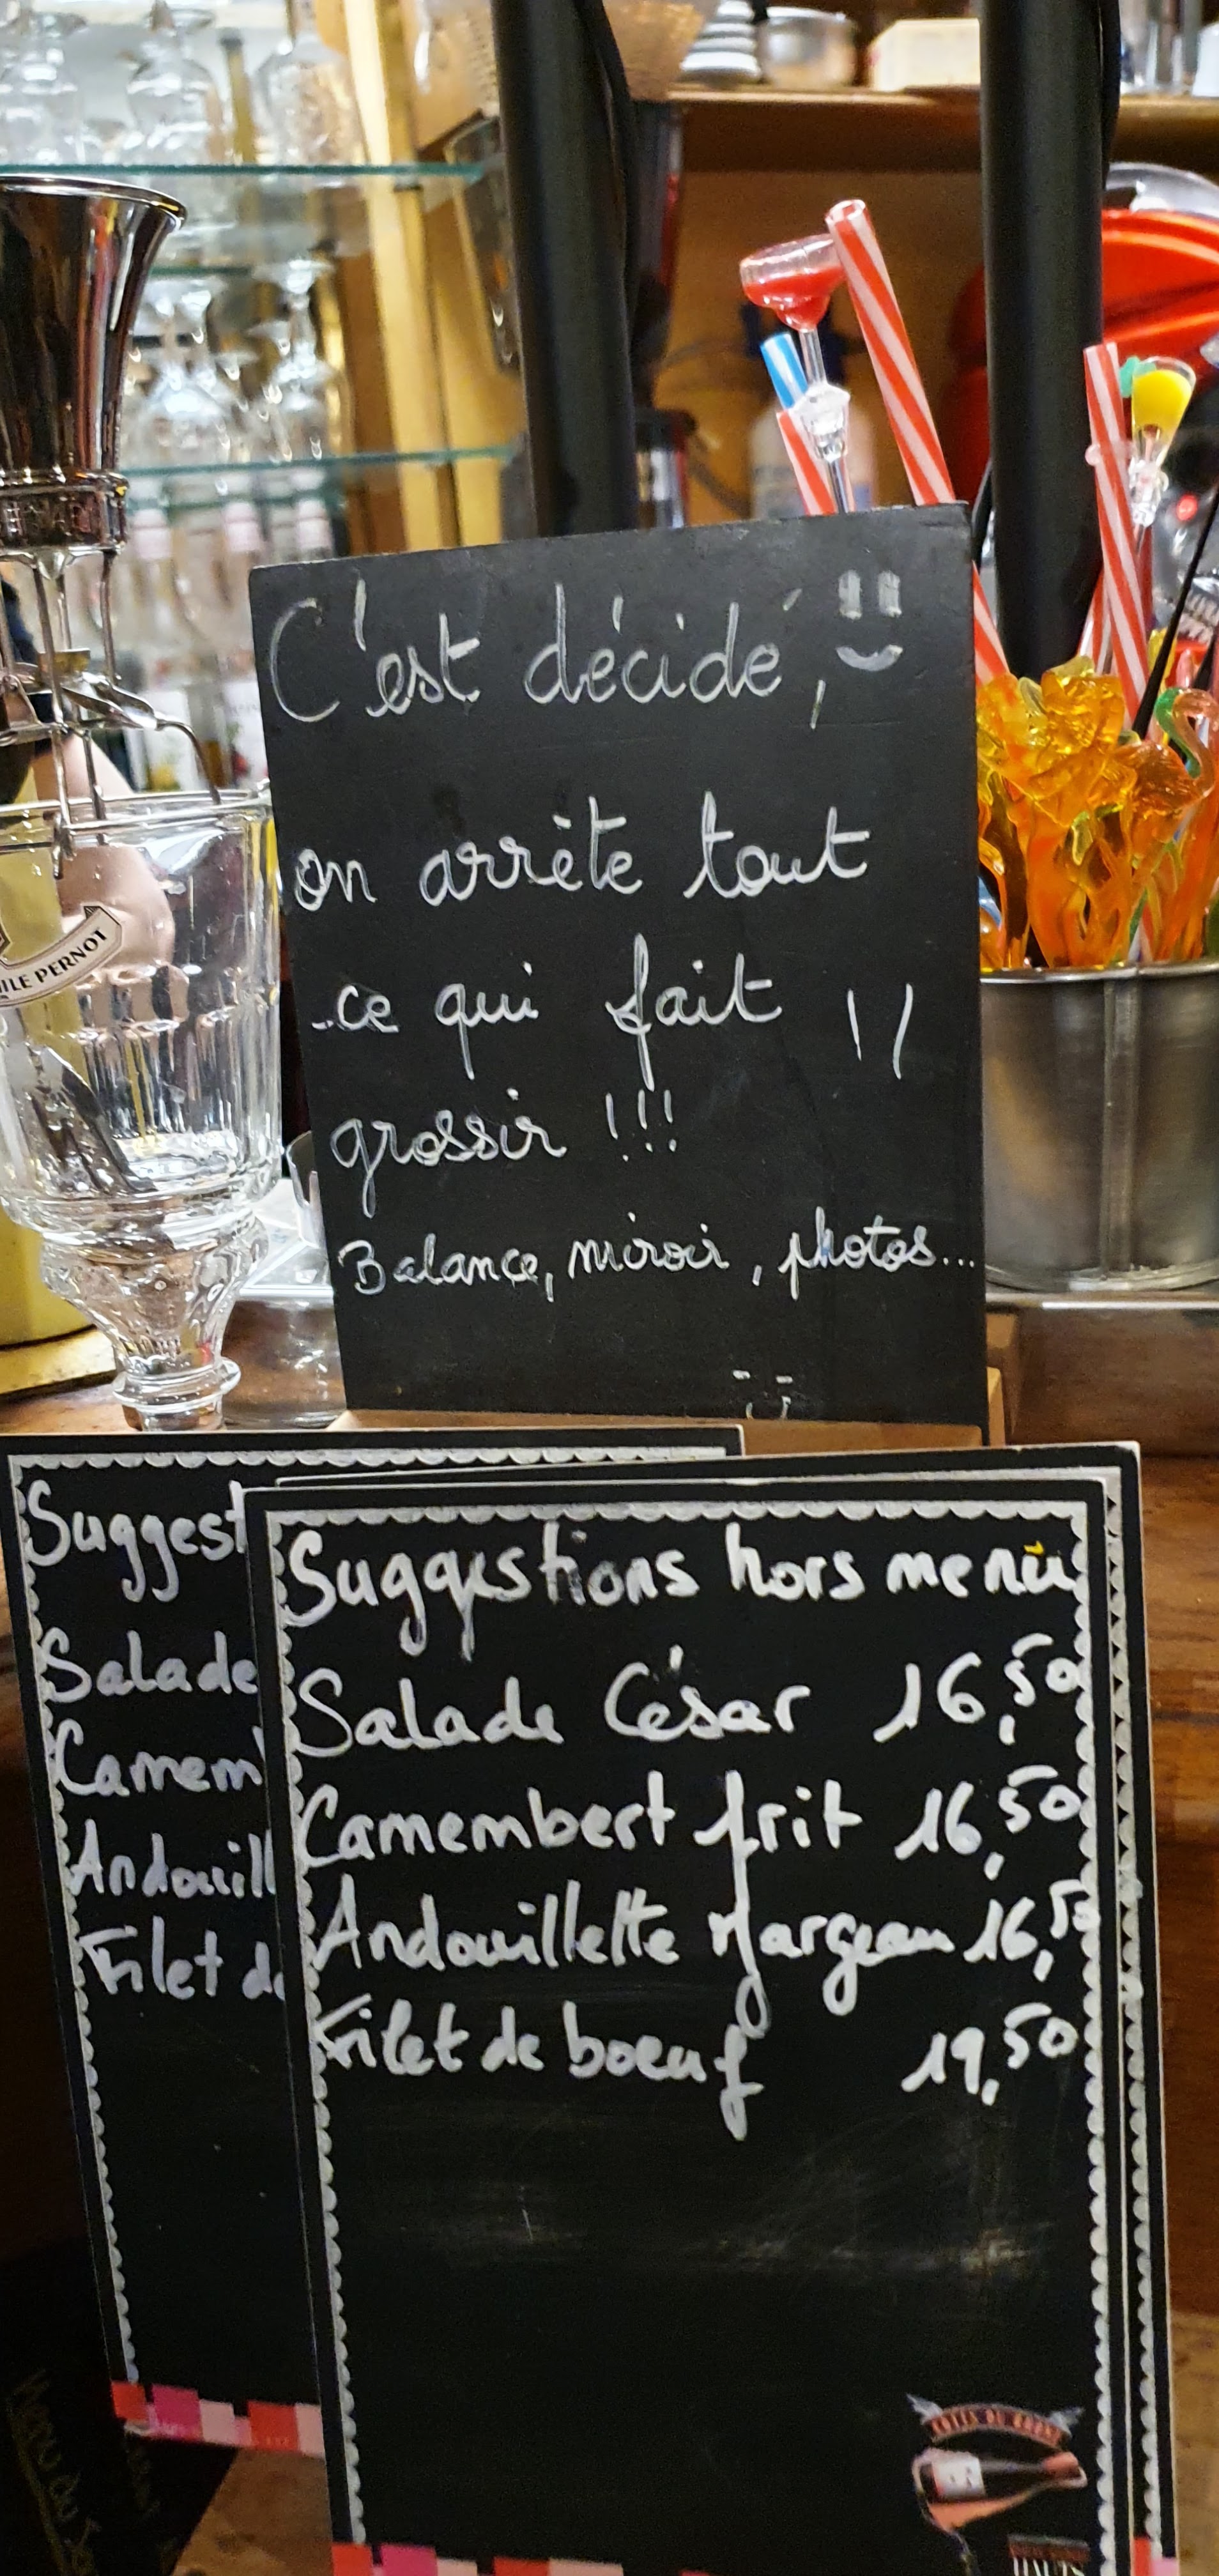 C'est décidé,
on arrête tout
ce qui fait
grossir !!!
Balance, miroir, photos...
ILE PERNOT
Suggest
Salade
Camem
Andouill
Filet de
Suggestions hors menu
Salade César 16,50
Camembert frit 16,50
Andouillette Margeau 16,50
Filet de boeuf 19,50
CÔTES DU RHÔNE